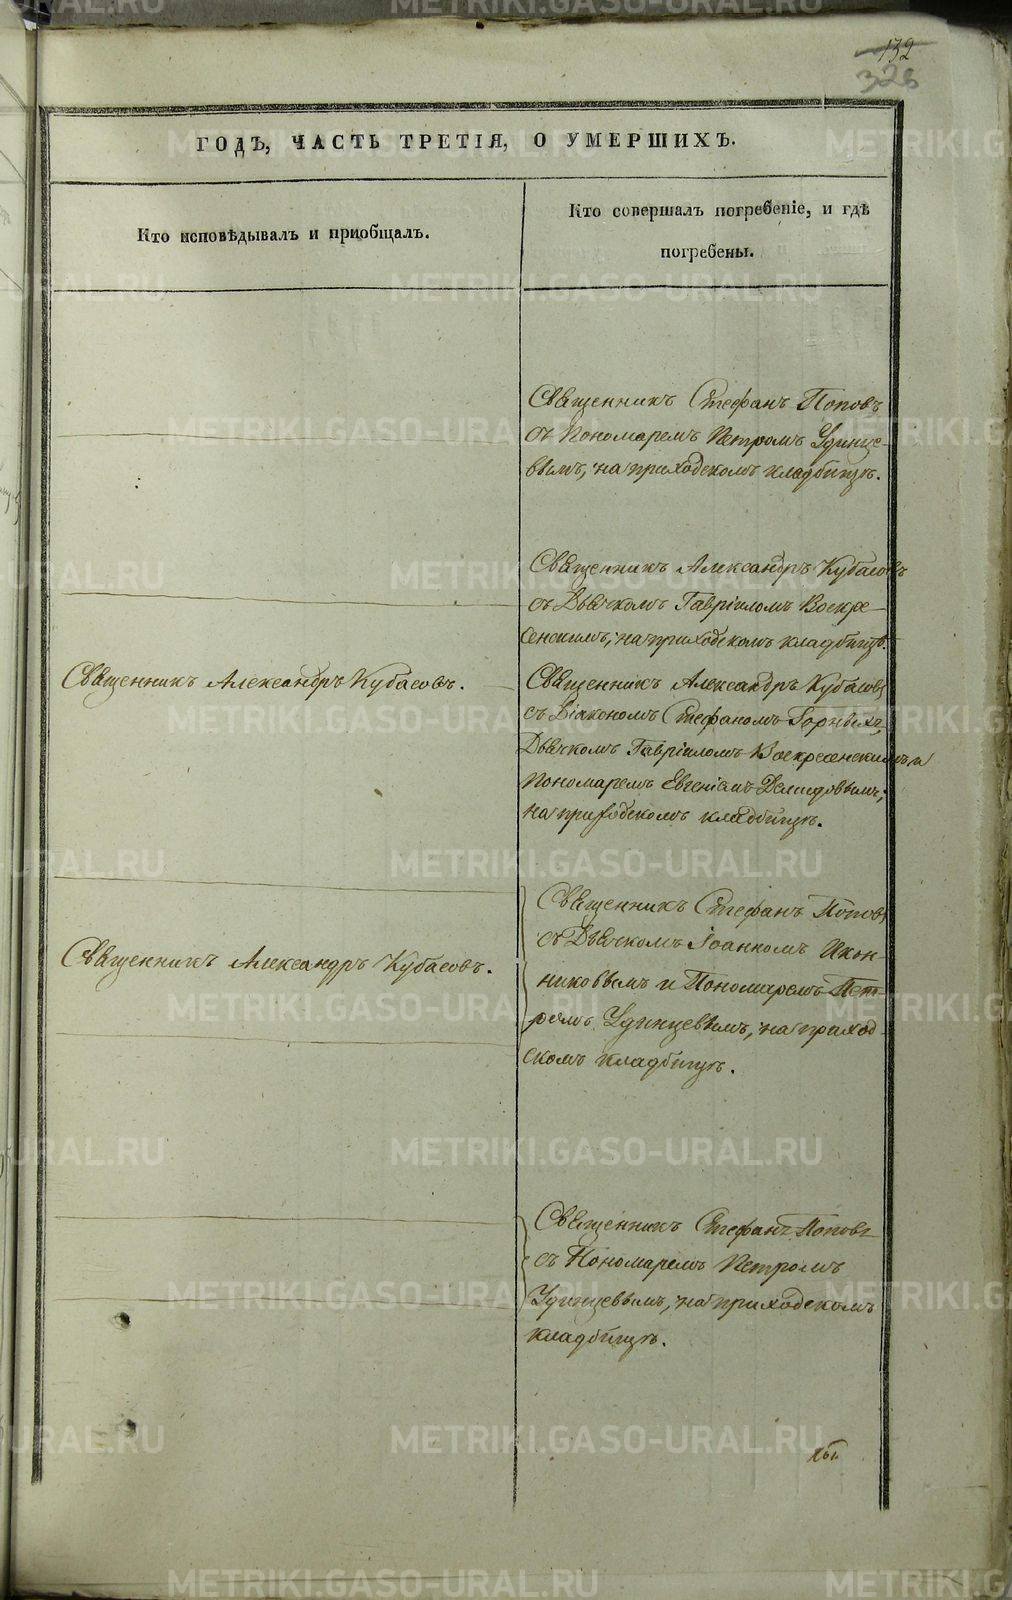 132
326
ГОДЪ, ЧАСТЬ ТРЕТІЯ, О УМЕРШИХЪ.
Кто исповѣдывалъ и приобщалъ.
Кто совершалъ погребеніе, и гдѣ
погребены.
Священникъ Стефанъ Поповъ
съ Пономаремъ Петромъ Удинце-
вымъ, на приходскомъ кладбищѣ.
Священникъ Александръ Кубасовъ
съ Дьячкомъ Гавріиломъ Воскре-
сенскимъ, на приходскомъ кладбищѣ.
Священникъ Александръ Кубасовъ.
Священникъ Александръ Кубасовъ
съ Діакономъ Стефаномъ Горныхъ,
Дьячкомъ Гавріиломъ Воскресенскимъ и
Пономаремъ Евгеніемъ Демидовымъ,
на приходскомъ кладбищѣ.
Священникъ Александръ Кубасовъ.
Священникъ Стефанъ Поповъ
съ Дьячкомъ Іоанномъ Икон-
никовымъ и Пономаремъ Пет-
ромъ Удинцевымъ, на приход
скомъ кладбищѣ.
Священникъ Стефанъ Поповъ
съ Пономаремъ Петромъ
Удинцевымъ, на приходскомъ
кладбищѣ.
METRIKI.GASO-URAL.RU